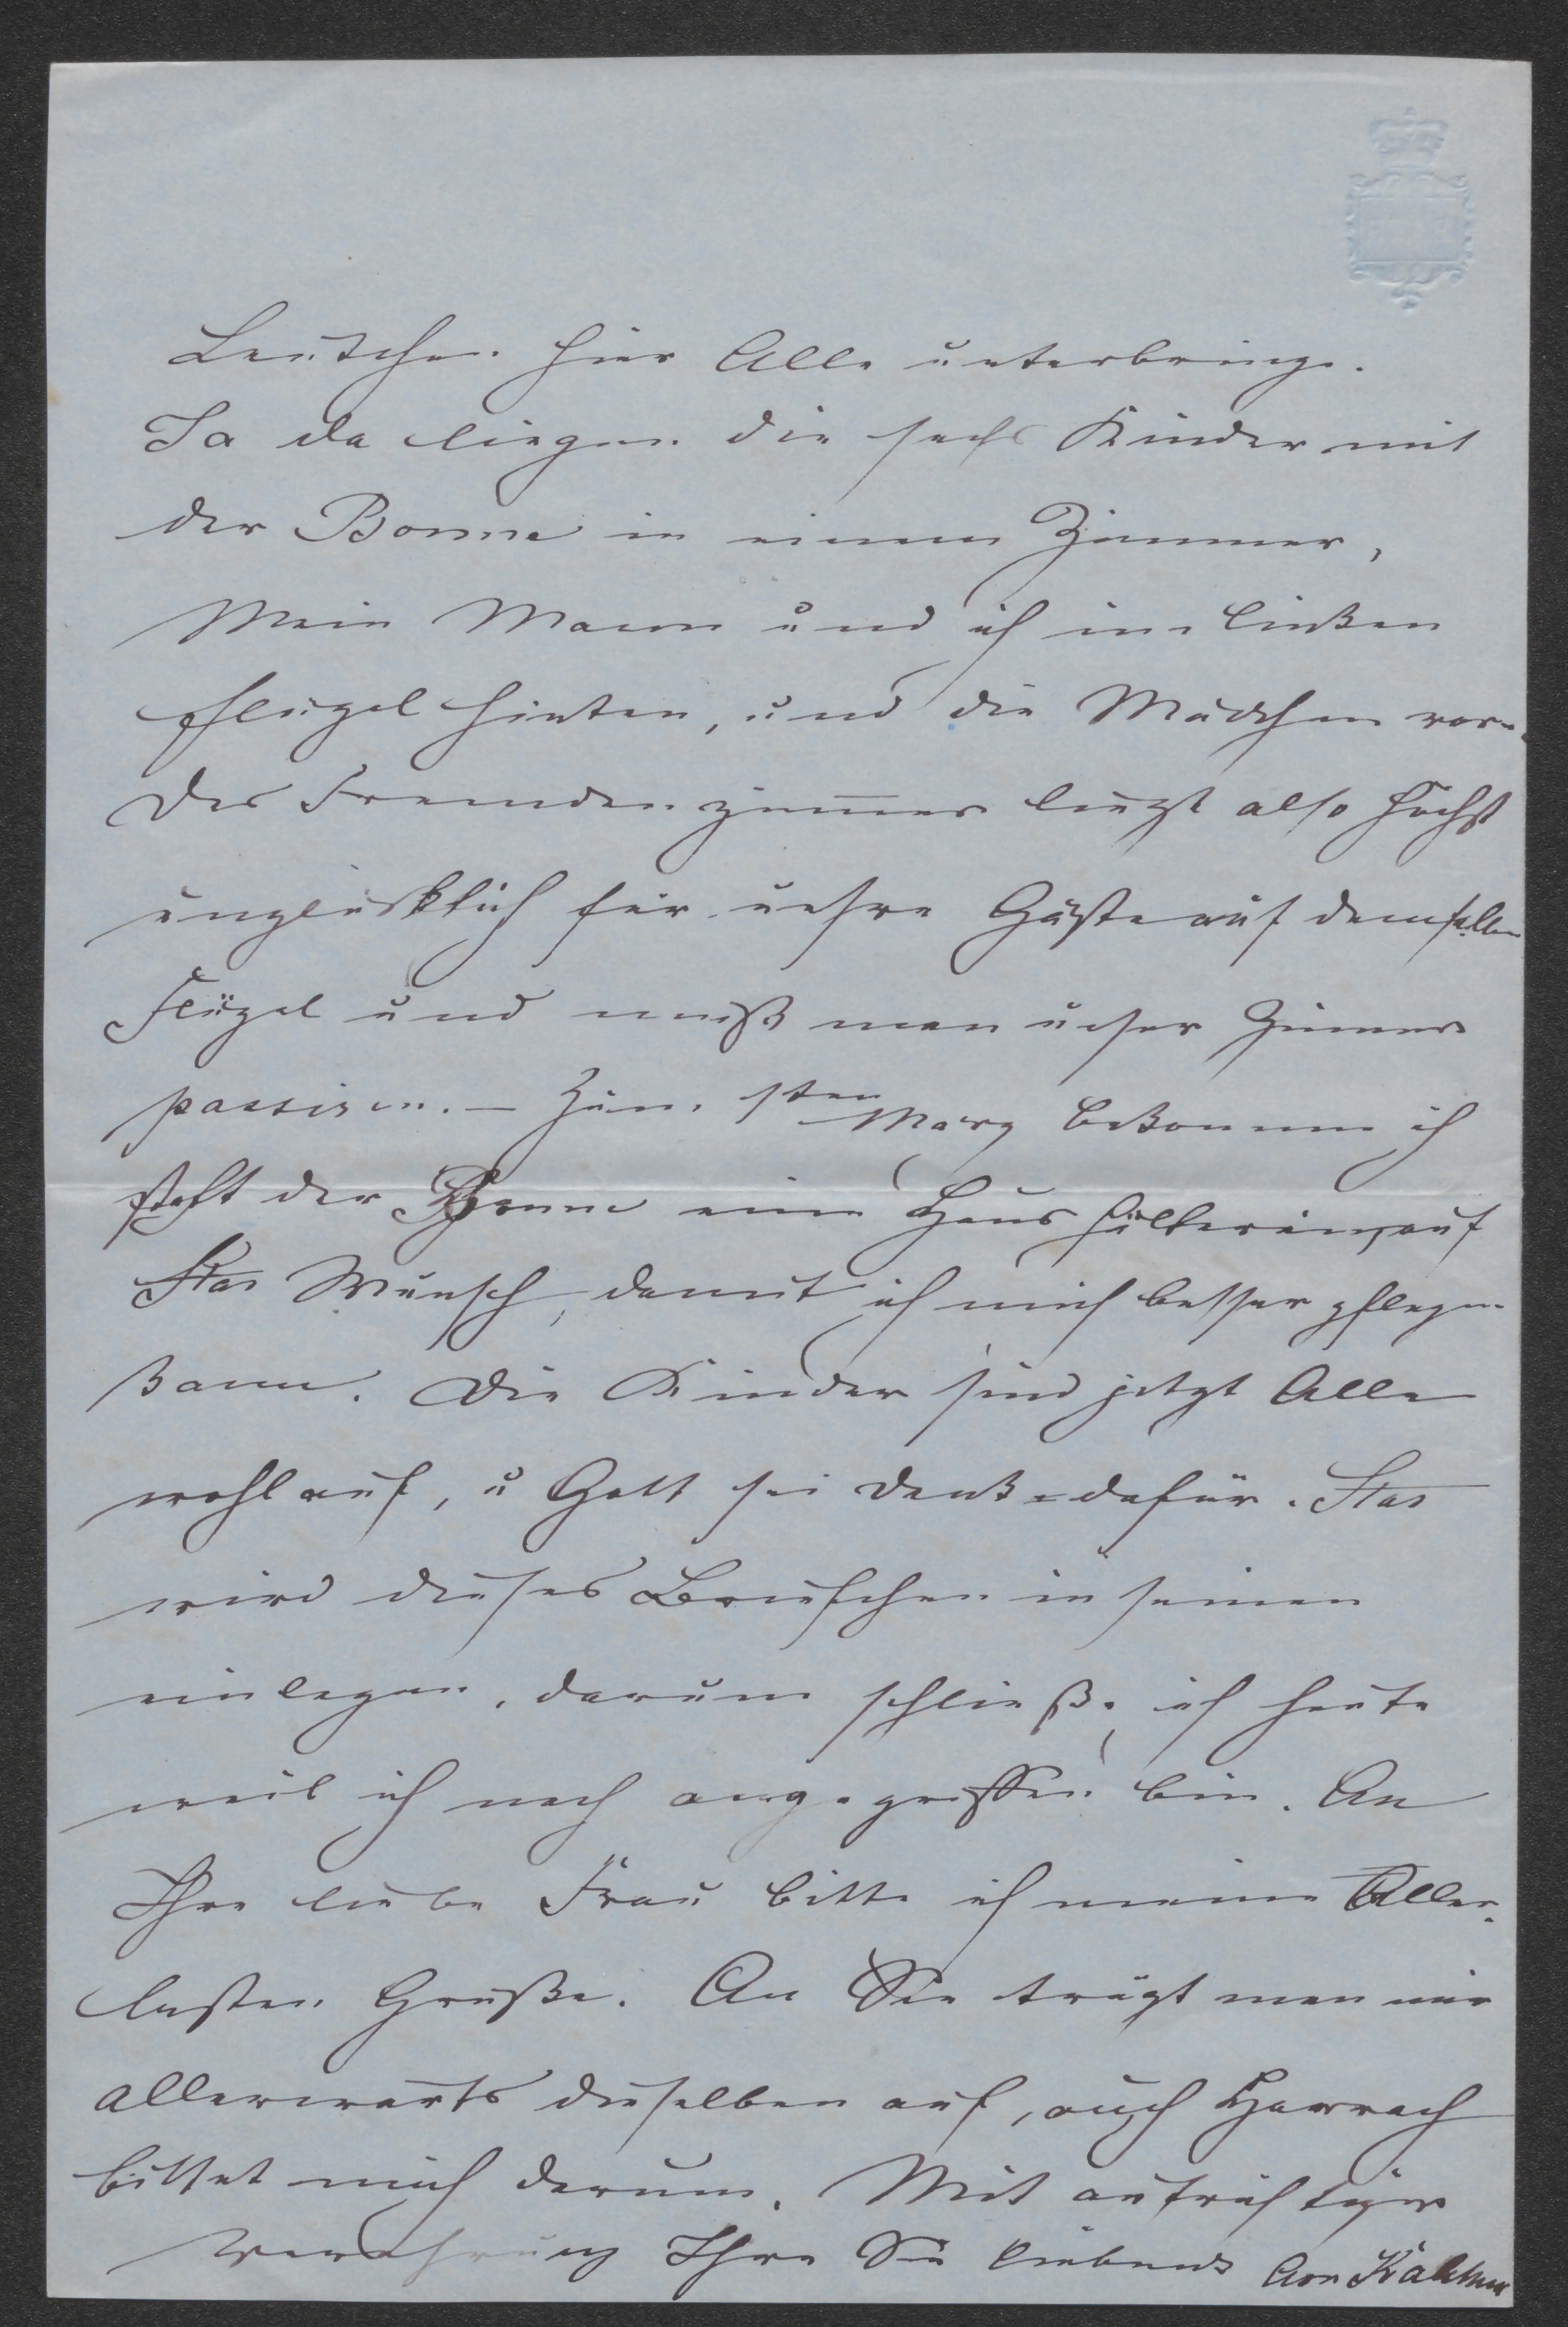 Leutchen hier Alle unterbringe.
Ja da liegen die sechs Kinder mit
der Bonne in einem Zimmer,
Mein Mann und ich im linken
Flügel hinten, und die Mädchen vorn.
Das Fremdenzimmer liegt also höchst
unglücklich für unsre Gäste auf demselben
Flügel und muß man unser Zimmer
passiren. – Zum 1sten März bekomme ich
statt der Bonne eine Haushälterin, auf
Stas Wunsch, damit ich mich besser pflegen
kann. Die Kinder sind jetzt Alle
wohlauf, u Gott sei Dank dafür. Stas
wird dieses Briefchen in seinen
einlegen, darum schließe ich heute
weil ich noch angegriffen bin. An
Ihre liebe Frau bitte ich meine Aller-
besten Grüße. An Sie trägt man mir
allerwärts dieselben auf, auch Harrach
bittet mich darum. Mit aufrichtiger
Verehrung Ihre Sie liebende